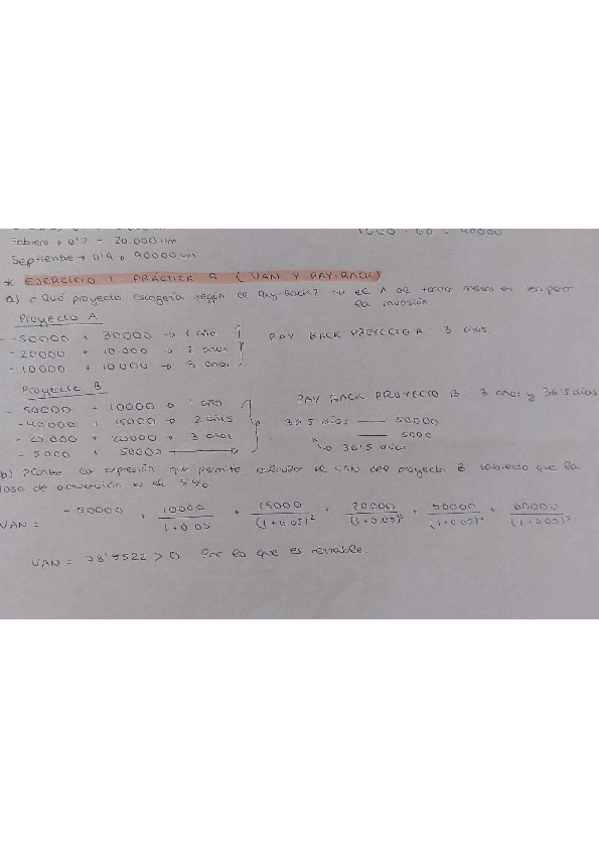 Febrero → 0'2 = 20.000 um
Septiembre → 0'9 → 90000 um
* EJERCICIO 1 PRÁCTICA 9 (VAN Y PAY-BACK)
a) ¿Qué proyecto escogería según el Pay-Back? → el A de tardar menos en recuperar la inversión
Proyecto A
-50000 + 30000 → 1 año
-20000 + 10.000 → 2 años
-10000 + 10000 → 3 años
PAY BACK PROYECTO A: 3 años
Proyecto B
- 50000 - 10000 → 1 año
-40000 + 15000 → 2 años
-25.000 + 20000 → 3 años
- 5000 + 5000
PAY BACK PROYECTO B: 3 años y 36'5 días
365 días — 50000
x — 5000
↳ 36'5 días
b) Plantee la expresión que permite calcular el VAN del proyecto B sabiendo que la
tasa de es el 5%
VAN = -50000 + 10000/(1+0.05) + 15000/(1+0.05)² + 20000/(1+0.05)³ + 50000/(1+0.05)⁴ + 60000/(1+0.05)⁵
VAN = > 0 Por lo que es rentable.